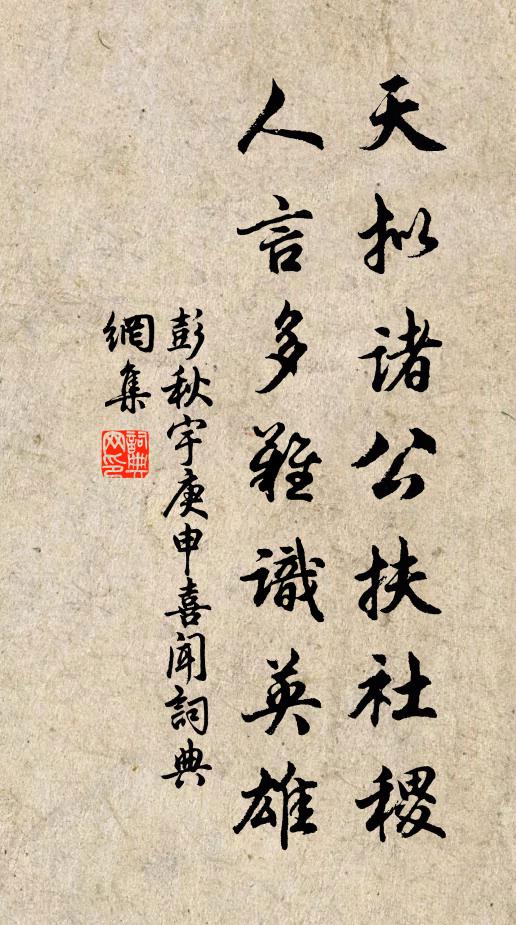 天拟诸公扶社稷
人言多難識英雄
彭秋宇庚申喜闻詞典
網集
詞典網印